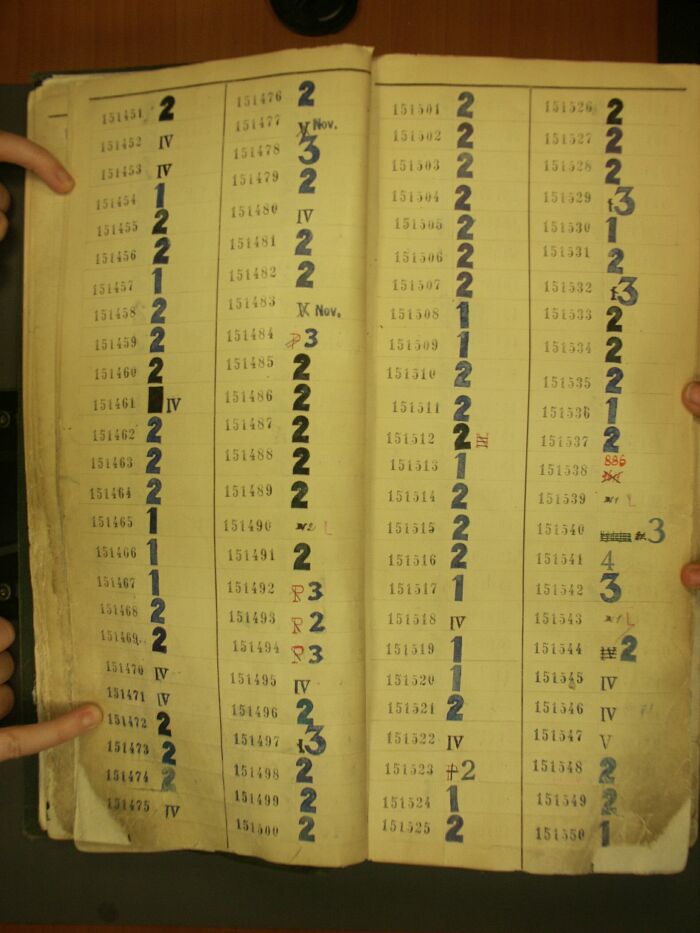 151451 2
151452 IV
151453 IV
151454 1
151455 2
151456 2
151457 1
151458 2
151459 2
151460 2
151461 IV
151462 2
151463 2
151464 2
151465 1
151466 1
151467 1
151468 2
151469 2
151470 IV
151471 IV
151472 2
151473 2
151474 2
151475 IV
151476 2
151477 V Nov.
151478 3
151479 2
151480 IV
151481 2
151482 2
151483 V Nov.
151484 P 3
151485 2
151486 2
151487 2
151488 2
151489 2
151490 L
151491 2
151492 P 3
151493 P 2
151494 P 3
151495 IV
151496 2
151497 3
151498 2
151499 2
151500 2
151501 2
151502 2
151503 2
151504 2
151505 2
151506 2
151507 2
151508 1
151509 1
151510 2
151511 2
151512 2 III
151513 1
151514 2
151515 2
151516 2
151517 1
151518 IV
151519 1
151520 1
151521 2
151522 IV
151523 2
151524 1
151525 2
151526 2
151527 2
151528 2
151529 3
151530 1
151531 2
151532 3
151533 2
151534 2
151535 2
151536 1
151537 2
151538 886
151539 L
151540 3
151541 4
151542 3
151543 L
151544 2
151545 IV
151546 IV
151547 V
151548 2
151549 2
151550 1